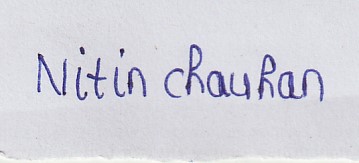 Nitin chauhan